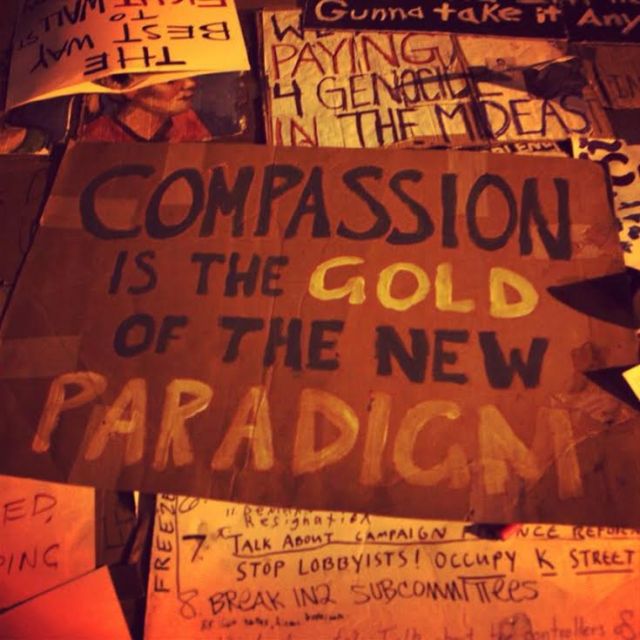 Gunna take it Any
PAYING
4 GENOCIDE
IN THE MIDEAS
THE
BEST
WAY
TO
WALL
COMPASSION
IS THE GOLD
OF THE NEW
PARADIGM
ED,
PING
FREEZE
Resignation
7 TALK ABOUT CAMPAIGN NCE REFOR
STOP LOBBYISTS! OCCUPY K STREET
8 BREAK IN2 SUBCOMMITTEES